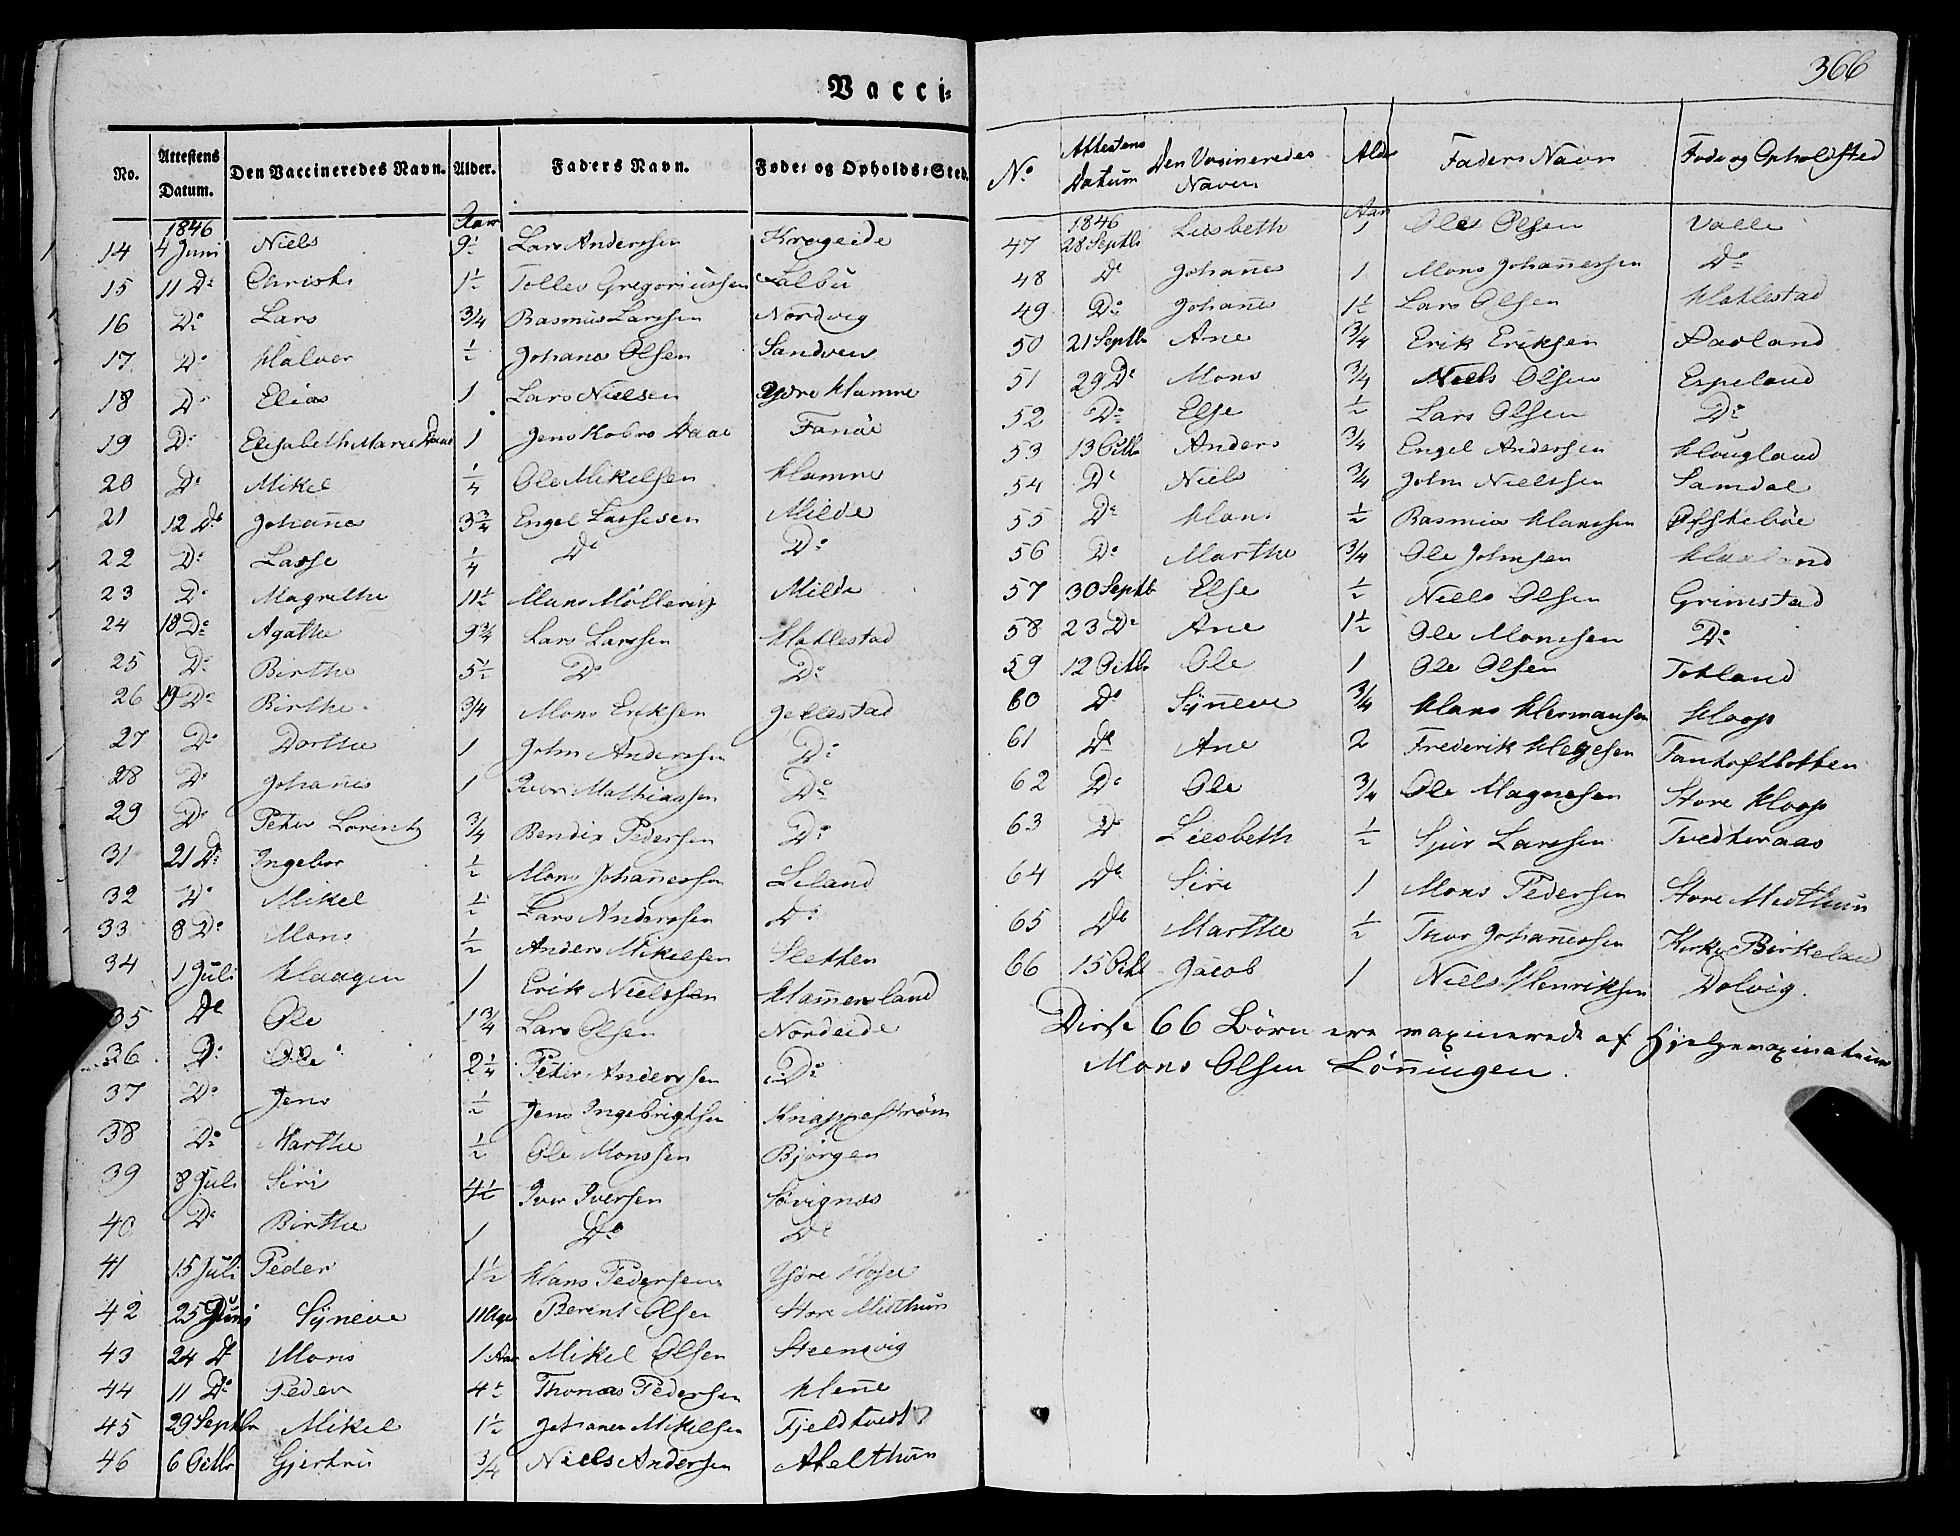 Vacci=
No. Attestens Datum. Den Vaccineredes Navn. Alder. Faders Navn. Føde= og Opholds=Sted.
1846 Aar
14 4 Juni Niels 9½ Lars Anderssen Krogeide
15 11 Do Christi 1½ Tolles Gregoriussen Sælbu
16 Do Lars 3/4 Rasmus Larssen Nordvig
17 Do Halvor ½ Johanes Olsen Sandven
18 Do Elias 1 Lars Nielsen Ydre Hamre
19 Do Elisabeth Marie Daae 1 Jens Kobro Daae Fanöe
20 Do Mikel ¼ Ole Mikelsen Hamre
21 12 Do Johannes 3¾ Engel Lassesen Milde
22 Do Lasse ¼ Do Do
23 Do Magrethe 11½ Hans Möllerup Milde
24 18 Do Agatha 9¾ Lars Larssen Hatlestad
25 Do Birthe 5½ Do Do
26 19 Do Birthe 3/4 Mons Eriksen Jellestad
27 Do Dorthe 1 John Anderssen Do
28 Do Johanes 1 Iver Mathiassen Do
29 Do Peter Lorentz 3/4 Bendix Pedersen Do
31 21 Do Ingebor ½ Mons Johannessen Liland
32 Do Mikel ½ Lars Anderssen Do
33 8 Do Mons ½ Anders Mikelsen Sletten
34 1 Juli Haagen 1 Erik Nielssen Hammersland
35 Do Ole 1¾ Lars Olsen Nordeide
36 Do Ole 2¼ Peter Anderssen Do
37 Do Jens ½ Jens Ingebrigtsen Knappestrøm
38 Do Marthe ½ Ole Monssen Bjørgen
39 8 Juli Siri 4½ Iver Iversen Søvignæs
40 Do Birthe 1 Do Do
41 15 Juli Peder 1½ Hans Pedersen Ydre
42 25 Juni Syneve 11 Uger Berent Olsen Store Midthun
43 24 Do Mons 1 Aar Mikel Olsen Steensvig
44 11 Do Peder 4½ Thomas Pedersen
45 29 Septbr Mikel 1½ Johanes Mikelsen Fjeldtvedt
46 6 Octbr Gjertrü 3/4 Niels Andersen Apelthun
366
No Attestens Datum Den Vaxineredes Navn Alder Faders Navn Føde og Opholdsted
1846 Aar
47 28 Septbr Liesbeth 1 Oles Olsen Valle
48 Do Johannes 1 Mons Johannessen Do
49 Do Johannes 1½ Lars Olsen Hatlestad
50 21 Septbr Ane 3/4 Erik Eriksen
51 29 Do Mons 3/4 Niels Olsen Espeland
52 Do Else ½ Lars Olsen Do
53 13 Octbr Anders 3/4 Engel Andersen Hougland
54 Do Niels 3/4 John Nielssen Samdal
55 Do Hans ½ Rasmus Hanssen
56 Do Marthe 3/4 Ole Johnsen Haaland
57 30 Septbr Else ½ Niels Olsen Grimstad
58 23 Do Ane 1½ Ole Monssen Do
59 12 Octbr Ole 1 Ole Olsen Totland
60 Do Syneve 3/4 Hans Hermansen Hoop
61 Do Ane 2 Frederik Helgesen Fantoftbotten
62 Do Ole 3/4 Ole Magnesen Store Hoop
63 Do Liesbeth ½ Sjur Larssen Tvedteraas
64 Do Siri 1 Mons Pedersen Store Midthun
65 Do Marthe ½ Thor Johannessen Kirke Birkeland
66 15 Octbr Jacob 1 Niels Henriksen Dolvig.
Disse 66 Børn ere vaxinerede af Hjelpevaxinateur
Mons Olsen Lønningen.